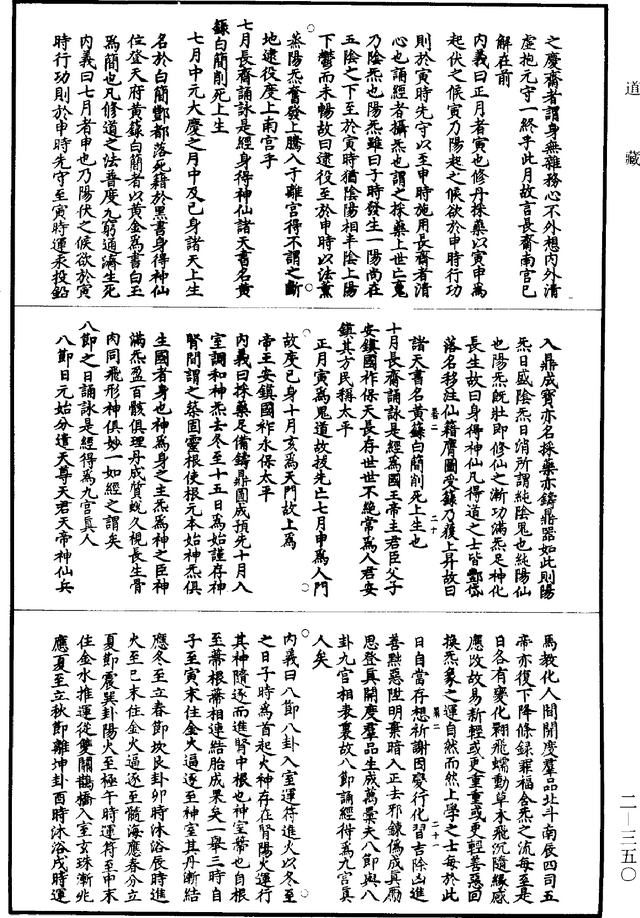 道藏
之慶齋者謂身無雜務心不外想內外清
虛抱元守一終乎此月故言長齋南宮已
解在前
內義曰正月者寅也修丹採藥以寅申爲
起伏之候寅乃陽起之候欲於申時行功
則於寅時先守以至申時施用長齋者清
心也誦經者攝炁也謂之採藥上世亡䰟
乃陰炁也陽炁雖曰子時發生一陽尚在
五陰之下至於寅時猶陰陽相半陰上陽
下鬱而未暢故曰逮役至於申時以法薫
蒸陽炁奮發上騰入于離宮得不謂之斷
地逮役度上南宮乎
七月長齋誦詠是經身得神仙諸天書名黃
籙白簡削死上生
七月中元大慶之月中及己身諸天上生
名於白簡酆都落死籍於黑書身得神仙
位登天府黃籙白簡者以黃金爲書白玉
爲簡也凡修道之法普度九窮通濟生死
內義曰七月者申也乃陽伏之候欲於寅
時行功則於申時先守至寅時運汞投鉛
入鼎成寶亦名採藥亦鑄鼎器如此則陽
炁日盛陰炁日消所謂純陰鬼也純陽仙
也陽炁既壯即修仙之漸功滿炁足神化
長生故曰身得神仙凡得道之士皆酆岱
落名移注仙籍膺圖受籙乃獲上昇故曰
諸天書名黃籙白簡削死上生也
十月長齋誦詠是經爲國王帝主君臣父子
安鎮國祚保天長存世世不絕常爲人君安
鎮其方民稱太平
正月寅爲鬼道故拔先亡七月申爲人門
故度己身十月亥爲天門故上爲
帝王安鎮國祚永保太平
內義曰採藥足備鑄鼎圓成預先十月入
室調和神炁去冬至十五日爲始謹存神
腎間謂之築固靈根使根元本始神炁俱
生國者身也神爲身之主炁爲神之臣神
滿炁盈百骸俱理丹成質蛻久視長生骨
肉同飛形神俱妙一如經之謂矣
八節之日誦詠是經得爲九宮真人
八節日元始分遣天尊天君天帝神仙兵
馬教化人間開度羣品北斗南辰四司五
帝亦復下降條録罪福含炁之流每至是
日各有變化翾飛蠕動草木飛沉隨緣感
應改故易新輕或更重重或更輕善惡回
換炁象之運自然而然上學之士每於此
日自當存想祈謝因變行化習吉除凶進
善黜惡陞明棄暗入正去邪鍊偽成真而
思登真開度羣品生成萬彙夫八節與八
卦九宮相表裏故八節誦經得爲九宮真
人矣
內義曰八節八卦入室運符進火以冬至
之日子時爲首起火神存在腎陽火運行
其神隨逐而進腎中根也神室蔕也自根
至蔕根蔕相連結胎成果矣一舉三時自
子至寅末住金火逼逐至神室其丹漸結
應冬至立春節坎艮卦卯時沐浴辰時進
火至巳末住金火逼逐至髓海應春分立
夏節震巽卦陽火至極午時運符至申末
住金水推運從雙關鵲橋入室玄珠漸兆
應夏至立秋節離坤卦酉時沐浴戌時運
卷二　二十
第二　二十一
二—三五〇